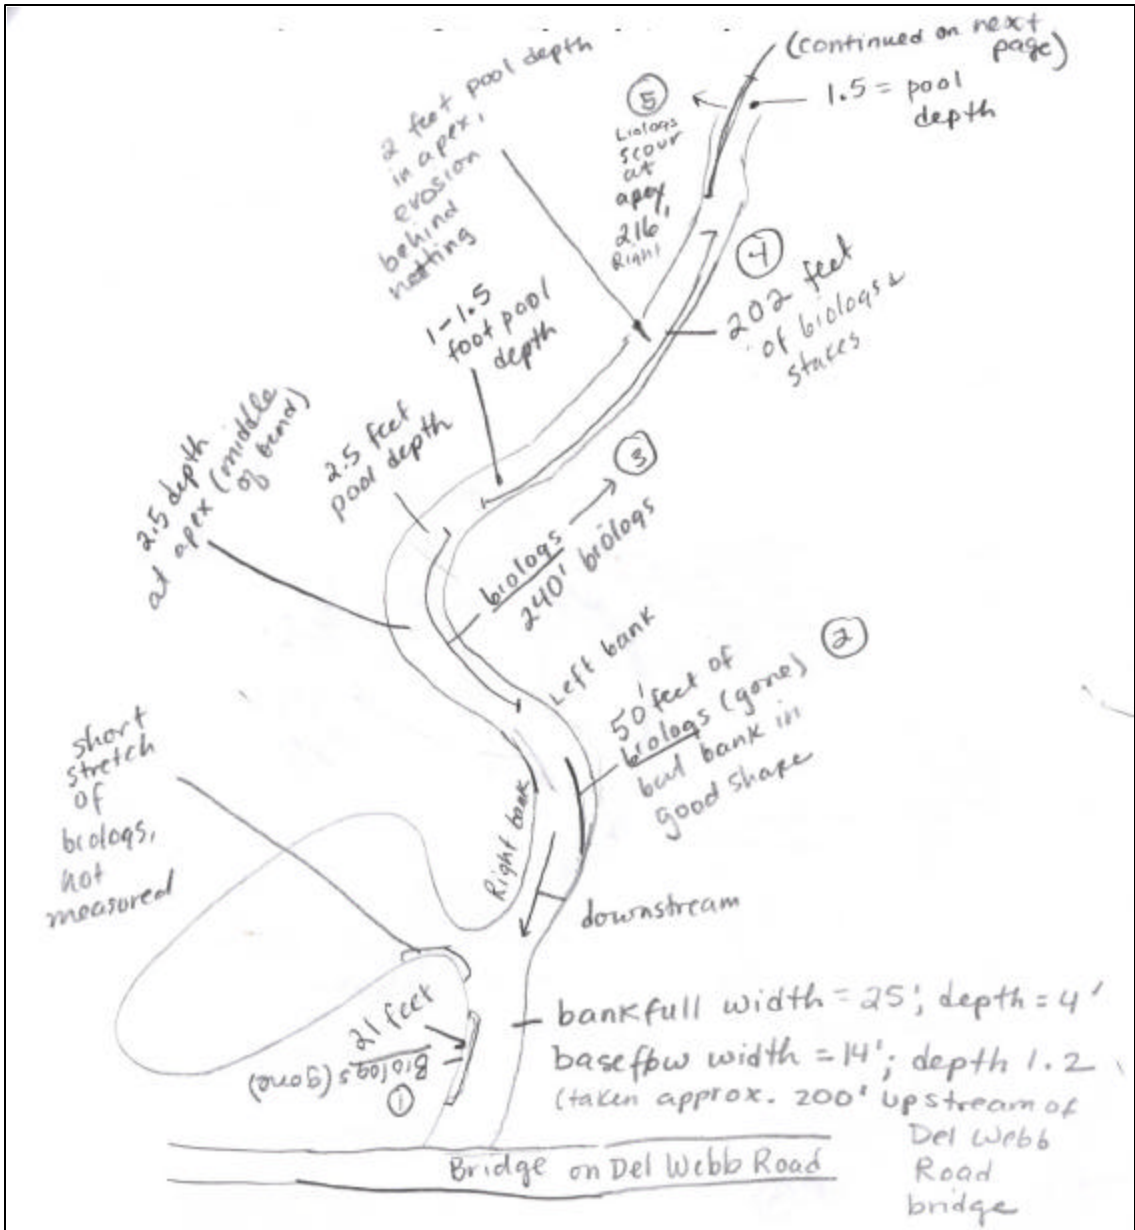 (continued on next
page)
1.5 = pool
depth
2 feet pool depth
in apex,
erosion
behind
netting
5
biologs
scour
at
apex
216',
Right
4
202 feet
of biologs &
stakes
1-1.5
foot pool
depth
2.5 feet
pool depth
2.5 depth
at apex (middle
of bend)
3
biologs
240' biologs
Left bank
2
50' feet of
biologs (gone)
but bank in
good shape
Right bank
short
stretch
of
biologs,
not
measured
downstream
21 feet
Biologs (gone)
1
bankfull width = 25'; depth = 4'
baseflow width = 14'; depth 1.2
(taken approx. 200' upstream of
Del Webb
Road
bridge
Bridge on Del Webb Road